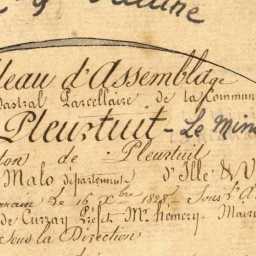 leau d'Assemblage
dastral Parcellaire de la Commun
Pleurtuit - Le Mini
ton de Pleurtuit
Malo département d'Ille & V
rrain le 16 Xbre 1828 Sous l'A
de Curzay Préfet Mr hemery Maire
Sous la Direction